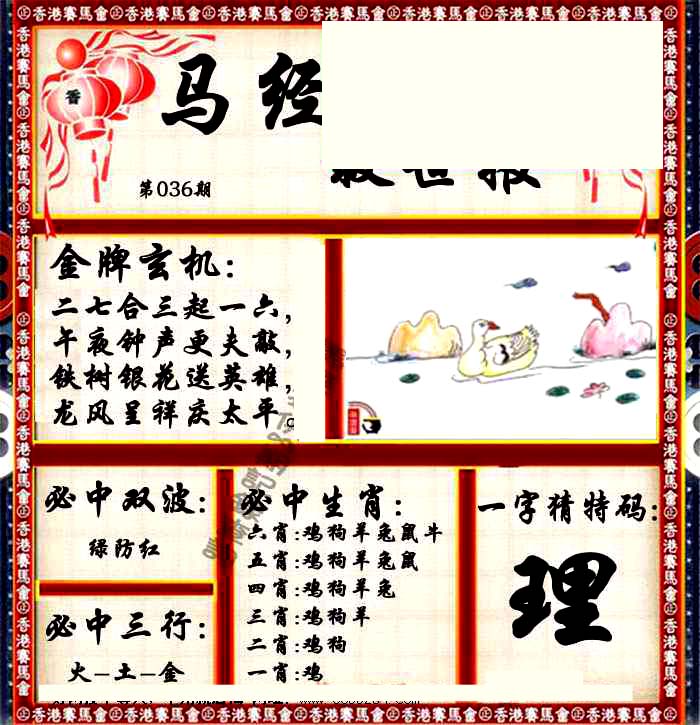 香港賽馬會 香港賽馬會 香港賽馬會 香港賽馬會 香港賽馬會 香港賽馬會
香
马经
救世报
第036期
金牌玄机:
二七合三起一六,
午夜钟声更夫敲,
铁树银花送英雄,
龙风呈祥庆太平。
3
必中双波:
绿防红
必中三行:
火-土-金
必中生肖:
六肖:鸡狗羊兔鼠牛
五肖:鸡狗羊兔鼠
四肖:鸡狗羊兔
三肖:鸡狗羊
二肖:鸡狗
一肖:鸡
一字猜特码:
理
香港賽馬會 香港賽馬會 香港賽馬會 香港賽馬會 香港賽馬會 香港賽馬會